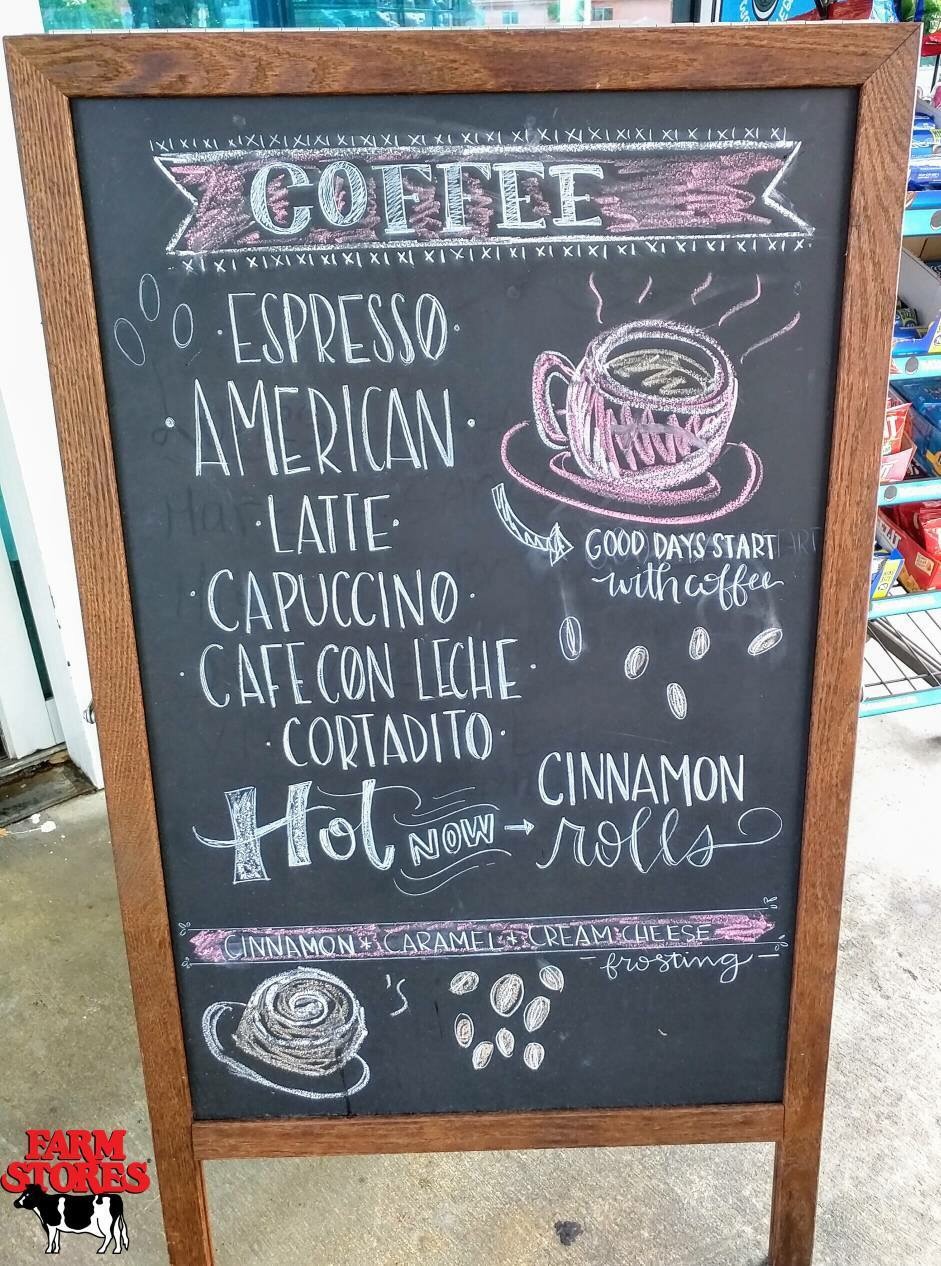 COFFEE
ESPRESSO
AMERICAN
LATTE
CAPUCCINO
CAFE CON LECHE
CORTADITO
GOOD DAYS START
with coffee
Hot NOW → CINNAMON
rolls
CINNAMON + CARAMEL + CREAM CHEESE
frosting
's
FARM
STORES